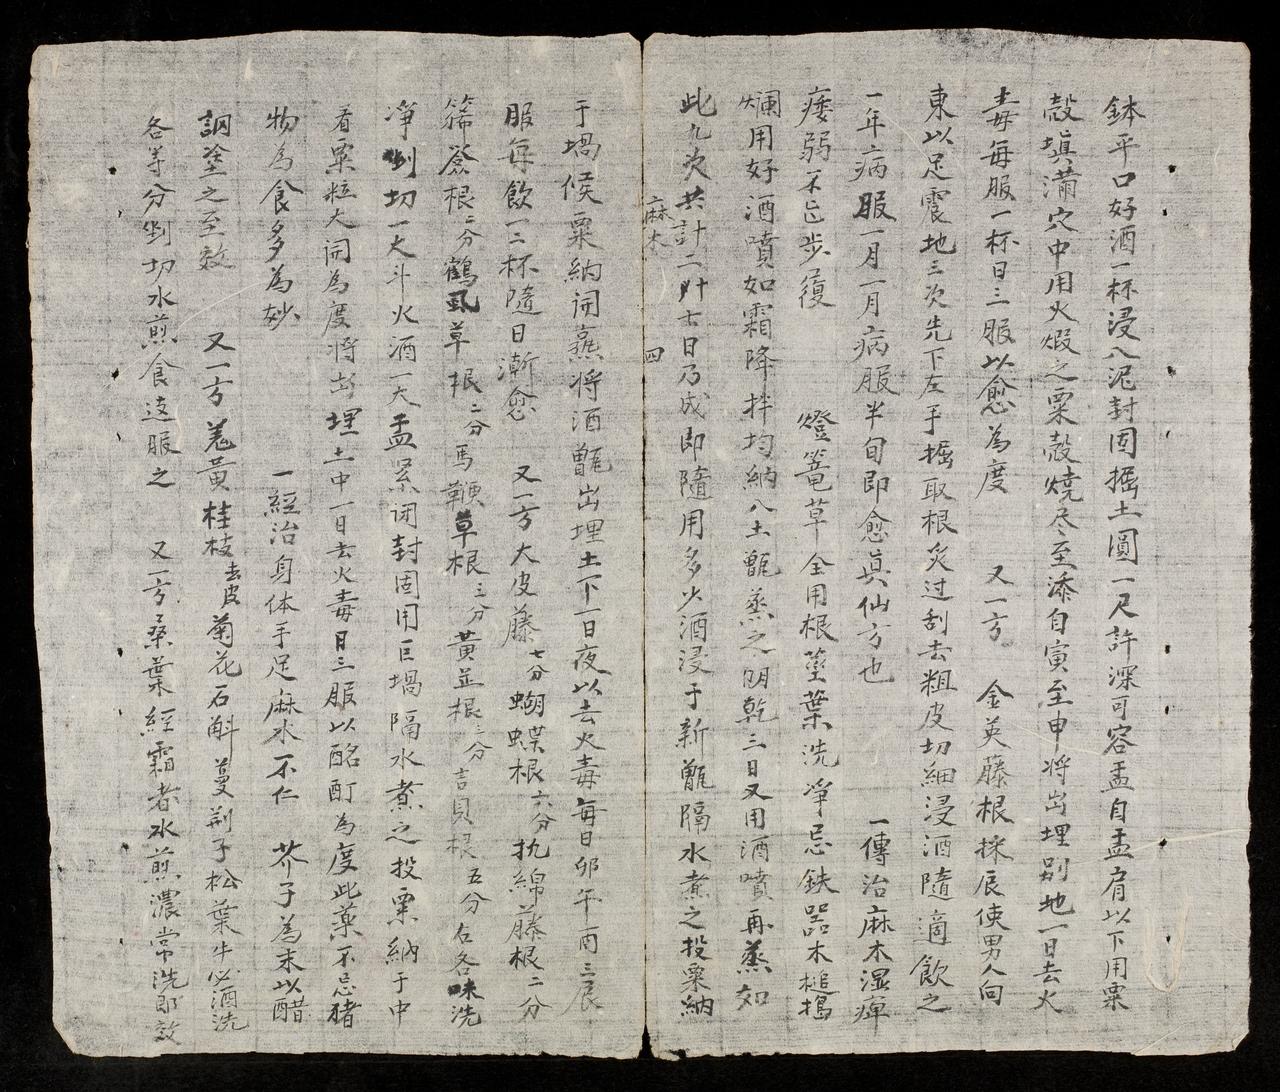 鉢平口好酒一杯浸八泥封固掘土圓一尺許深可容盂自盂肩以下用粟
殼填滿穴中用火煅之粟殼燒尽至添自寅至申将出埋別地一日去火
毒每服一杯日三服以愈為度 又一方 金英藤根採辰使男人向
東以足震地三次先下左手掘取根炙过刮去粗皮切細浸酒隨適飲之
一年病服一月一月病服半旬即愈真仙方也 一傳治麻木湿痺
痿弱不能步履 燈篭草全用根莖葉洗淨忌鉄器木槌搗
爛用好酒噴如霜降拌均納八土甑蒸之阴乾三日又用酒噴再蒸如
此九次共計二十七日乃成即隨用多少酒浸于新甑隔水煮之投粟納
麻木 四
于堝候粟納闭蒸将酒甑出埋土下一日夜以去火毒每日卯午酉三辰
服每飲一二杯隨日漸愈 又一方大皮藤七分蝴蝶根六分執綿藤根二分
豨薟根二分鶴虱草根二分馬鞭草根三分黃並根三分吉貝根五分右各味洗
凈剉切一大斗火酒一大盂紧闭封固用巨堝隔水煮之投粟納于中
看粟粒大開為度将出埋土中一日去火毒日三服以酩酊為度此薬不忌猪
物為食多為妙 一經治身体手足麻木不仁 芥子為末以醋
調塗之至效 又一方羌黃桂枝去皮菊花石斛蔓荆子松葉牛必酒洗
各等分剉切水煎食远服之 又一方桑葉經霜者水煎濃常洗即效